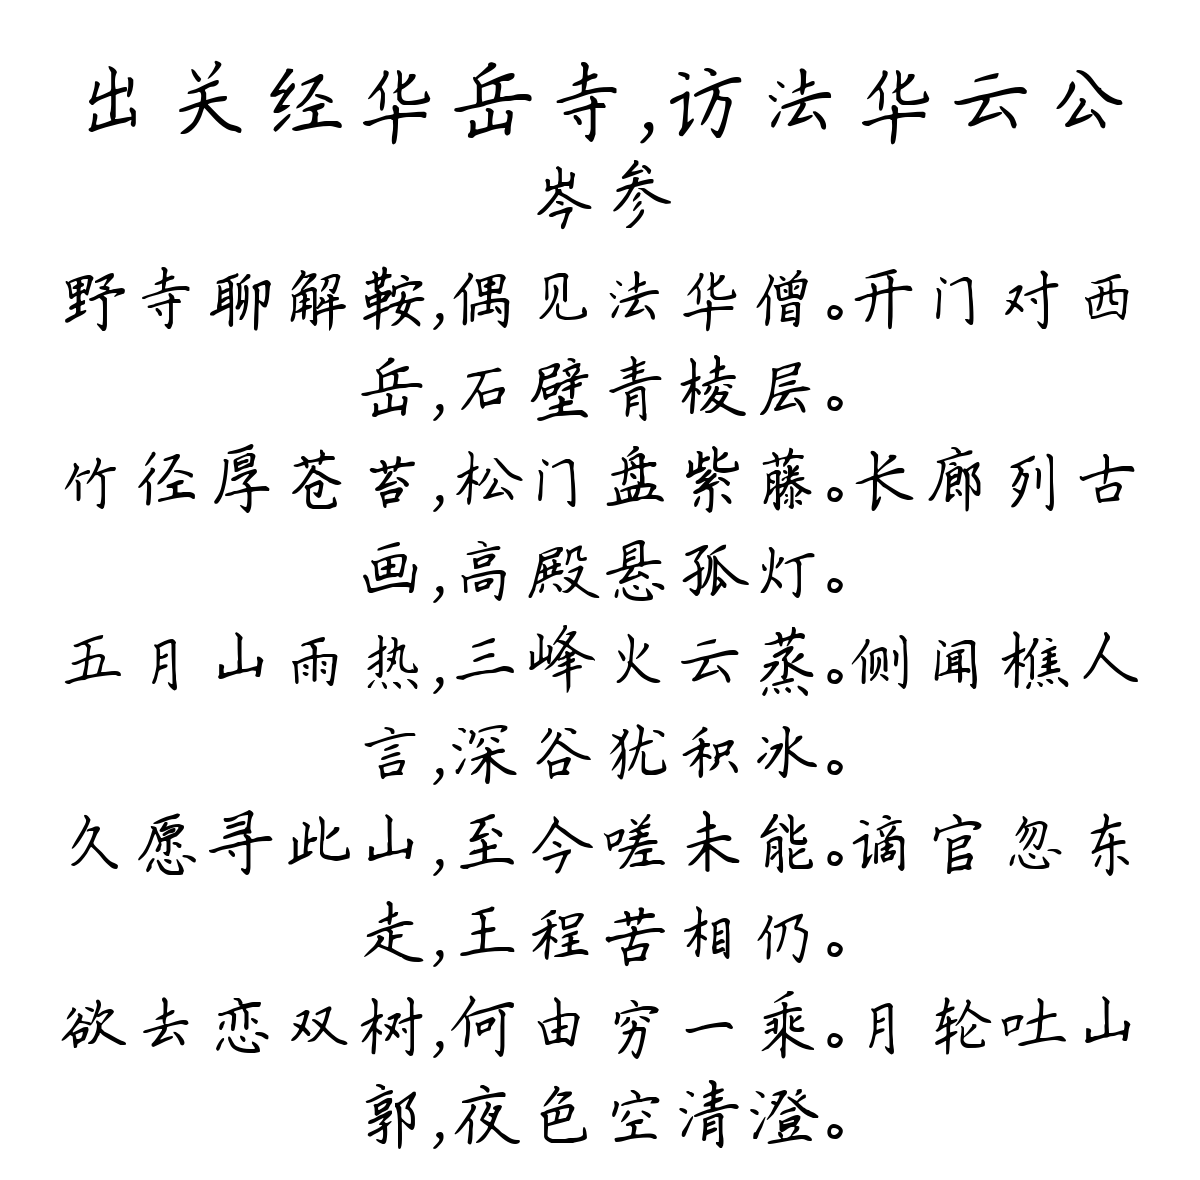 出关经华岳寺,访法华云公
岑参
野寺聊解鞍,偶见法华僧。开门对西
岳,石壁青棱层。
竹径厚苍苔,松门盘紫藤。长廊列古
画,高殿悬孤灯。
五月山雨热,三峰火云蒸。侧闻樵人
言,深谷犹积冰。
久愿寻此山,至今嗟未能。谪官忽东
走,王程苦相仍。
欲去恋双树,何由穷一乘。月轮吐山
郭,夜色空清澄。